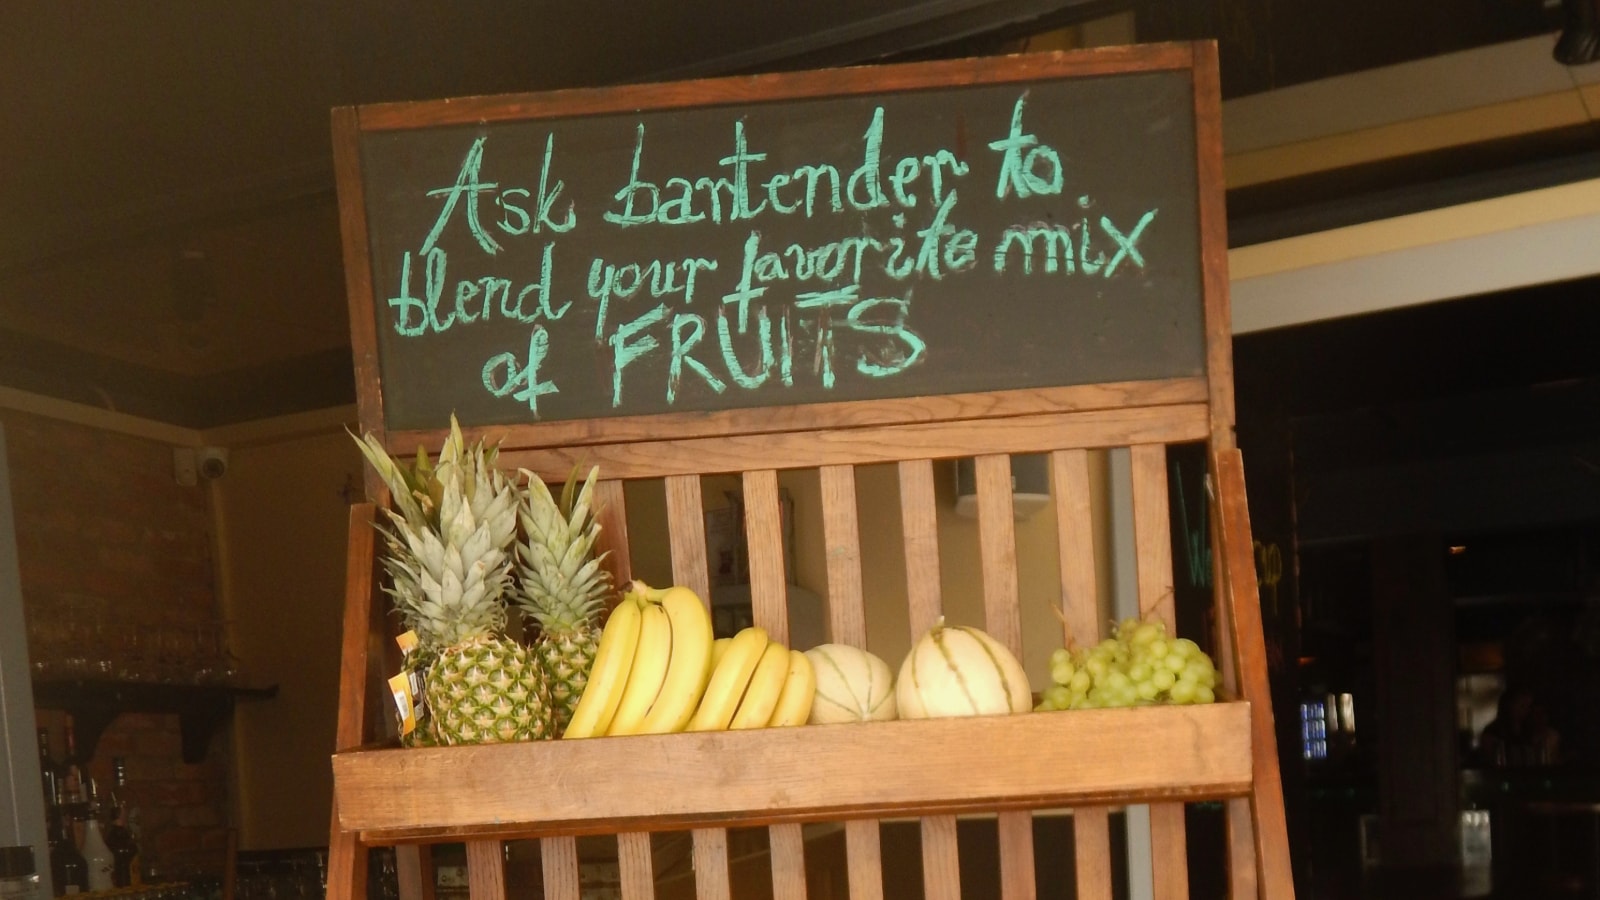 Ask bartender to
blend your favorite mix
of FRUITS